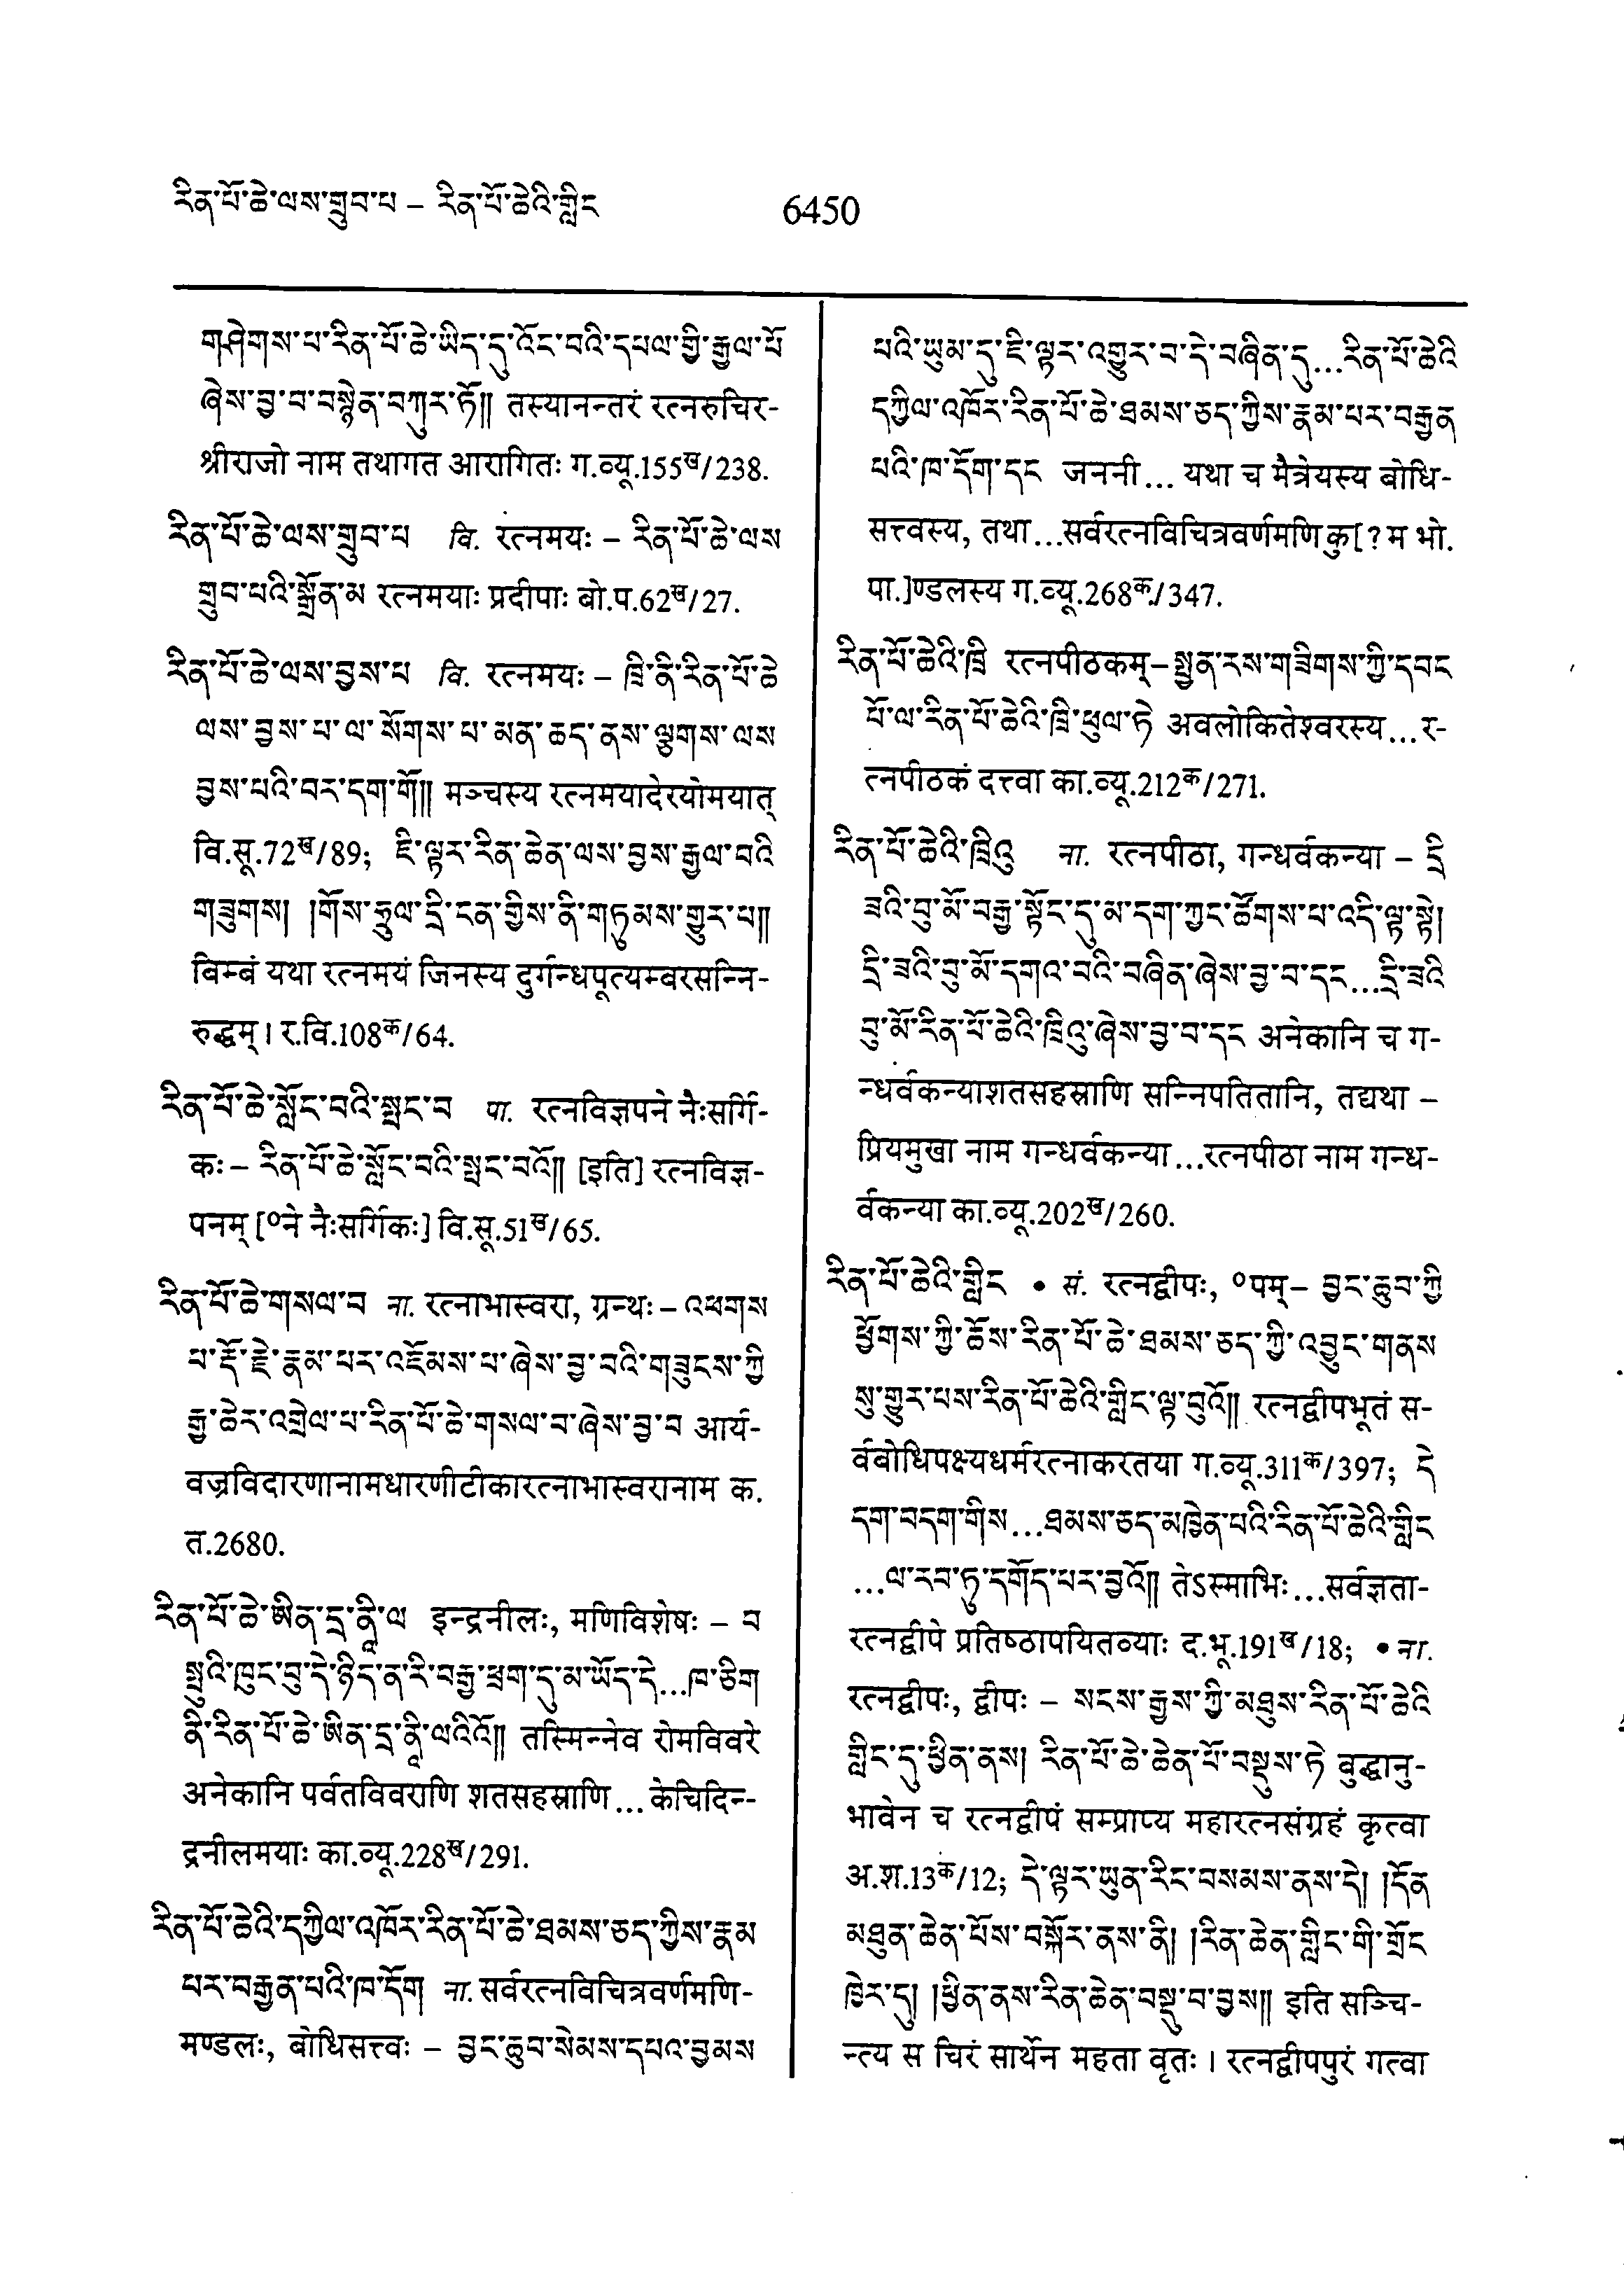 རིན་པོ་ཆེ་ལས་གྲུབ་པ – རིན་པོ་ཆེའི་གླིང
6450
གཤེགས་པ་རིན་པོ་ཆེ་ཡིད་དུ་འོང་བའི་དཔལ་གྱི་རྒྱལ་པོ
ཞེས་བྱ་བ་བསྙེན་བཀུར་ཏོ།། तस्यानन्तरं रत्नरुचिर-
श्रीराजो नाम तथागत आरागितः ग.व्यू.155ख/238.
རིན་པོ་ཆེ་ལས་གྲུབ་པ वि. रत्नमयः – རིན་པོ་ཆེ་ལས
གྲུབ་པའི་སྒྲོན་མ रत्नमयाः प्रदीपाः बो.प.62ख/27.
རིན་པོ་ཆེ་ལས་བྱས་པ वि. रत्नमयः – ཁྲི་ནི་རིན་པོ་ཆེ
ལས་བྱས་པ་ལ་སོགས་པ་མན་ཆད་ནས་ལྕགས་ལས
བྱས་པའི་བར་དག་གོ།། मञ्चस्य रत्नमयादेरयोमयात्
वि.सू.72ख/89; ཇི་ལྟར་རིན་ཆེན་ལས་བྱས་རྒྱལ་བའི
གཟུགས། །གོས་ཧྲུལ་དྲི་ངན་གྱིས་ནི་གཏུམས་གྱུར་པ།།
विम्बं यथा रत्नमयं जिनस्य दुर्गन्धपूत्यम्बरसन्नि-
रुद्धम् । र.वि.108क/64.
རིན་པོ་ཆེ་སློང་བའི་སྤང་བ पा. रत्नविज्ञपने नैःसर्गि-
कः – རིན་པོ་ཆེ་སློང་བའི་སྤང་བའོ།། [इति] रत्नविज्ञ-
पनम् [०ने नैःसर्गिकः] वि.सू.51ख/65.
རིན་པོ་ཆེ་གསལ་བ ना. रत्नाभास्वरा, ग्रन्थः – འཕགས
པ་རྡོ་རྗེ་རྣམ་པར་འཇོམས་པ་ཞེས་བྱ་བའི་གཟུངས་ཀྱི
རྒྱ་ཆེར་འགྲེལ་པ་རིན་པོ་ཆེ་གསལ་བ་ཞེས་བྱ་བ आर्य-
वज्रविदारणानामधारणीटीकारत्नाभास्वरानाम क.
त.2680.
རིན་པོ་ཆེ་ཨིན་དྲ་ནཱི་ལ इन्द्रनीलः, मणिविशेषः – བ
སྤུའི་ཁུང་བུ་དེ་ཉིད་ན་རི་བརྒྱ་ཕྲག་དུ་མ་ཡོད་དེ...ཁ་ཅིག
ནི་རིན་པོ་ཆེ་ཨིན་དྲ་ནཱི་ལའིའོ།། तस्मिन्नेव रोमविवरे
अनेकानि पर्वतविवराणि शतसहस्राणि... केचिदिन्-
द्रनीलमयाः का.व्यू.228ख/291.
རིན་པོ་ཆེའི་དཀྱིལ་འཁོར་རིན་པོ་ཆེ་ཐམས་ཅད་ཀྱིས་རྣམ
པར་བརྒྱན་པའི་ཁ་དོག ना. सर्वरत्नविचित्रवर्णमणि-
मण्डलः, बोधिसत्त्वः – བྱང་ཆུབ་སེམས་དཔའ་བྱམས
པའི་ཡུམ་དུ་ཇི་ལྟར་འགྱུར་བ་དེ་བཞིན་དུ...རིན་པོ་ཆེའི
དཀྱིལ་འཁོར་རིན་པོ་ཆེ་ཐམས་ཅད་ཀྱིས་རྣམ་པར་བརྒྱན
པའི་ཁ་དོག་དང जननी... यथा च मैत्रेयस्य बोधि-
सत्त्वस्य, तथा...सर्वरत्नविचित्रवर्णमणिकु[?म भो.
पा.]ण्डलस्य ग.व्यू.268क/347.
རིན་པོ་ཆེའི་ཁྲི रत्नपीठकम्– སྤྱན་རས་གཟིགས་ཀྱི་དབང
པོ་ལ་རིན་པོ་ཆེའི་ཁྲི་ཕུལ་ཏེ अवलोकितेश्वरस्य...र-
त्नपीठकं दत्त्वा का.व्यू.212क/271.
རིན་པོ་ཆེའི་ཁྲིའུ ना. रत्नपीठा, गन्धर्वकन्या – དྲི
ཟའི་བུ་མོ་བརྒྱ་སྟོང་དུ་མ་དག་ཀྱང་ཚོགས་པ་འདི་ལྟ་སྟེ།
དྲི་ཟའི་བུ་མོ་དགའ་བའི་བཞིན་ཞེས་བྱ་བ་དང...དྲི་ཟའི
བུ་མོ་རིན་པོ་ཆེའི་ཁྲིའུ་ཞེས་བྱ་བ་དང अनेकानि च ग-
न्धर्वकन्याशतसहस्राणि सन्निपतितानि, तद्यथा –
प्रियमुखा नाम गन्धर्वकन्या...रत्नपीठा नाम गन्ध-
र्वकन्या का.व्यू.202ख/260.
རིན་པོ་ཆེའི་གླིང • सं. रत्नद्वीपः, ०पम्– བྱང་ཆུབ་ཀྱི
ཕྱོགས་ཀྱི་ཆོས་རིན་པོ་ཆེ་ཐམས་ཅད་ཀྱི་འབྱུང་གནས
སུ་གྱུར་པས་རིན་པོ་ཆེའི་གླིང་ལྟ་བུའོ།། रत्नद्वीपभूतं स-
र्वबोधिपक्ष्यधर्मरत्नाकरतया ग.व्यू.311क/397; དེ
དག་བདག་གིས...ཐམས་ཅད་མཁྱེན་པའི་རིན་པོ་ཆེའི་གླིང
...ལ་རབ་ཏུ་དགོད་པར་བྱའོ།། तेऽस्माभिः...सर्वज्ञता-
रत्नद्वीपे प्रतिष्ठापयितव्याः द.भू.191ख/18; • ना.
रत्नद्वीपः, द्वीपः – སངས་རྒྱས་ཀྱི་མཐུས་རིན་པོ་ཆེའི
གླིང་དུ་ཕྱིན་ནས། རིན་པོ་ཆེ་ཆེན་པོ་བསྡུས་ཏེ बुद्धानु-
भावेन च रत्नद्वीपं सम्प्राप्य महारत्नसंग्रहं कृत्वा
अ.श.13क/12; དེ་ལྟར་ཡུན་རིང་བསམས་ནས་དེ། །དོན
མཐུན་ཆེན་པོས་བསྐོར་ནས་ནི། །རིན་ཆེན་གླིང་གི་གྲོང
ཁྱེར་དུ། །ཕྱིན་ནས་རིན་ཆེན་བསྡུ་བ་བྱས།། इति सञ्चि-
न्त्य स चिरं सार्थेन महता वृतः । रत्नद्वीपपुरं गत्वा